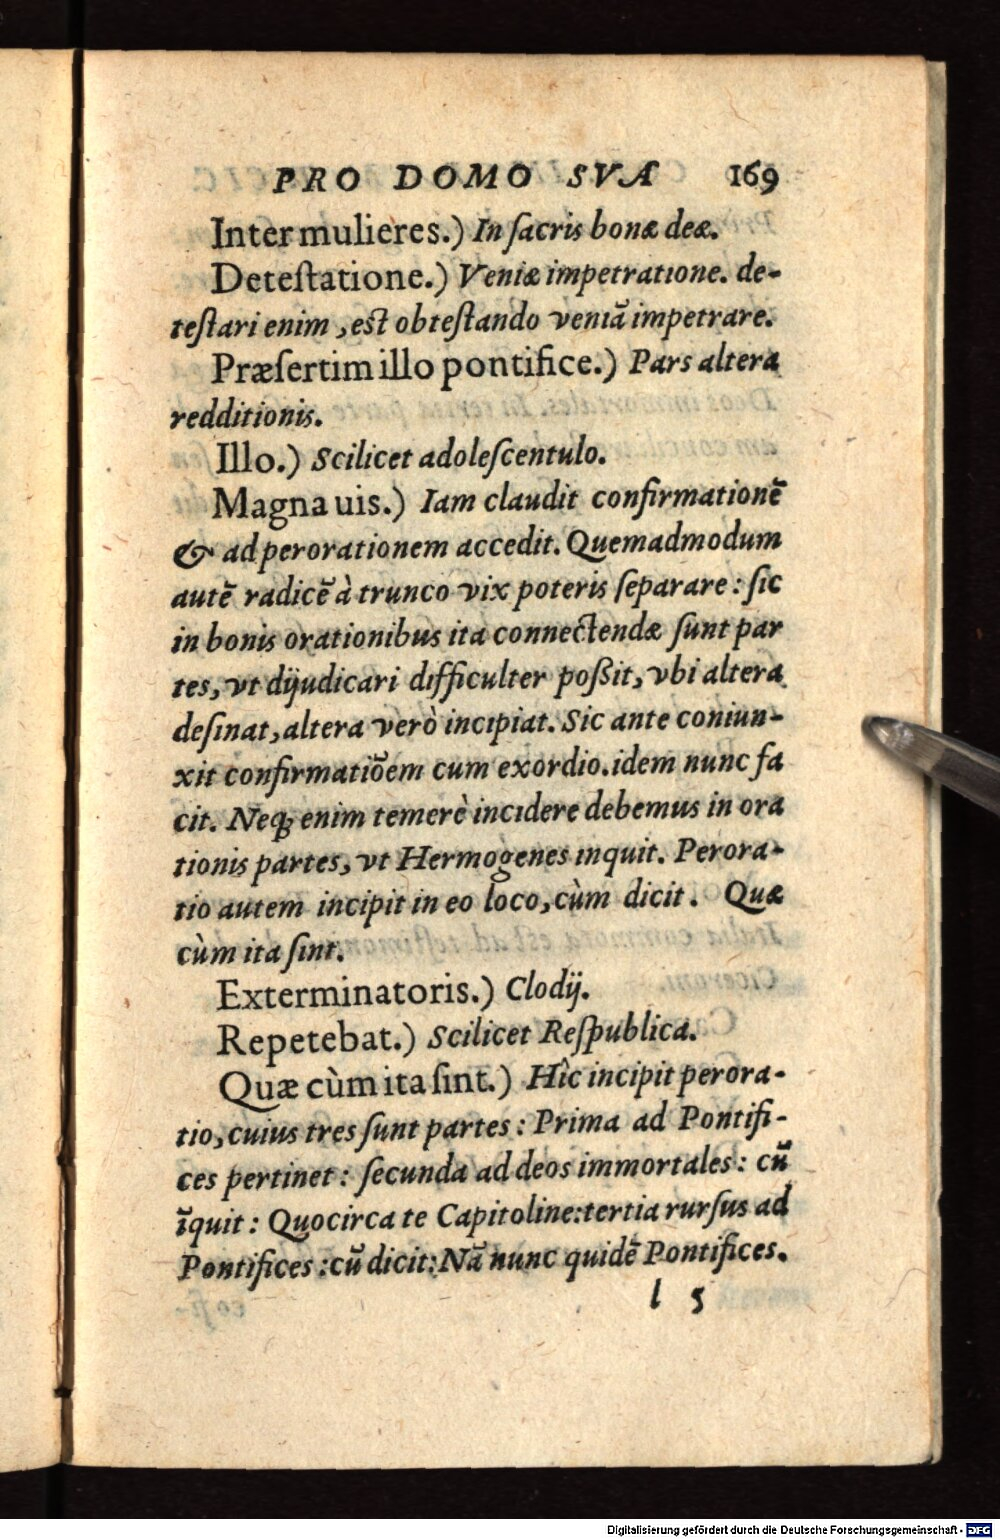 PRO DOMO SVA 169
Inter mulieres.) In ſacris bonæ deæ.
Deteſtatione.) Veniæ impetratione. de-
teſtari enim, eſt obteſtando veniā impetrare.
Præſertim illo pontifice.) Pars altera
redditionis.
Illo.) Scilicet adoleſcentulo.
Magna uis.) Iam claudit confirmationē
& ad perorationem accedit. Quemadmodum
autē radicē à trunco vix poteris ſeparare: ſic
in bonis orationibus ita connectendæ ſunt par
tes, vt dijudicari difficulter poßit, vbi altera
deſinat, altera verò incipiat. Sic ante coniun-
xit confirmatiōem cum exordio. idem nunc fa
cit. Neq; enim temerè incidere debemus in ora
tionis partes, vt Hermogenes inquit. Perora-
tio autem incipit in eo loco, cùm dicit. Quæ
cùm ita ſint.
Exterminatoris.) Clodij.
Repetebat.) Scilicet Reſpublica.
Quæ cùm ita ſint.) Hîc incipit perora-
tio, cuius tres ſunt partes: Prima ad Pontifi-
ces pertinet: ſecunda ad deos immortales: cū
īquit: Quocirca te Capitoline: tertia rurſus ad
Pontifices: cū dicit: Nā nunc quidē Pontifices.
l 5
Digitalisierung gefördert durch die Deutsche Forschungsgemeinschaft - DFG